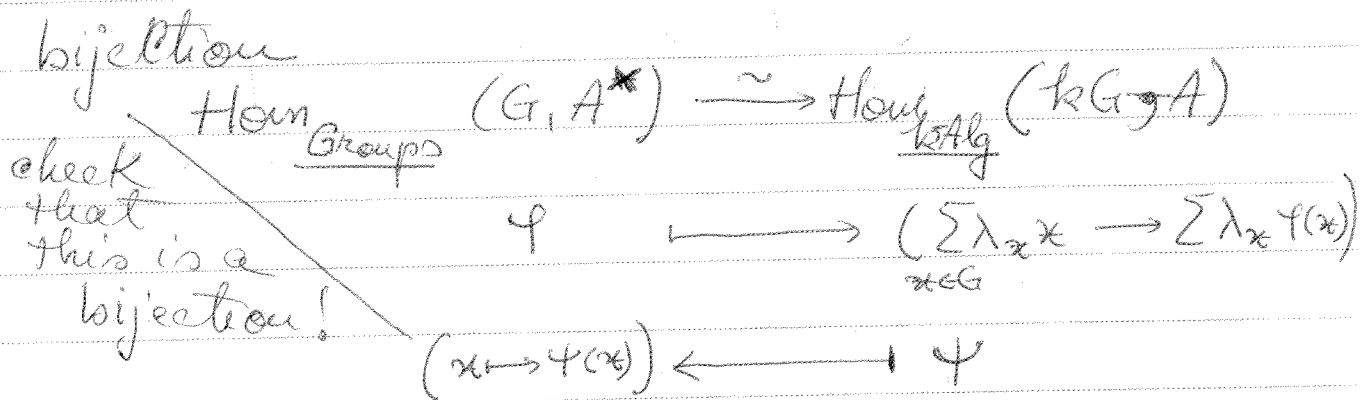 bijection
Hom_Groups (G, A*) ⟶~ Hom_kAlg (kG, A)
check
that
this is a
bijection!
φ ⟼ (∑_{x∈G} λ_x x ⟶ ∑ λ_x φ(x))
(x ⟼ Ψ(x)) ⟻ Ψ